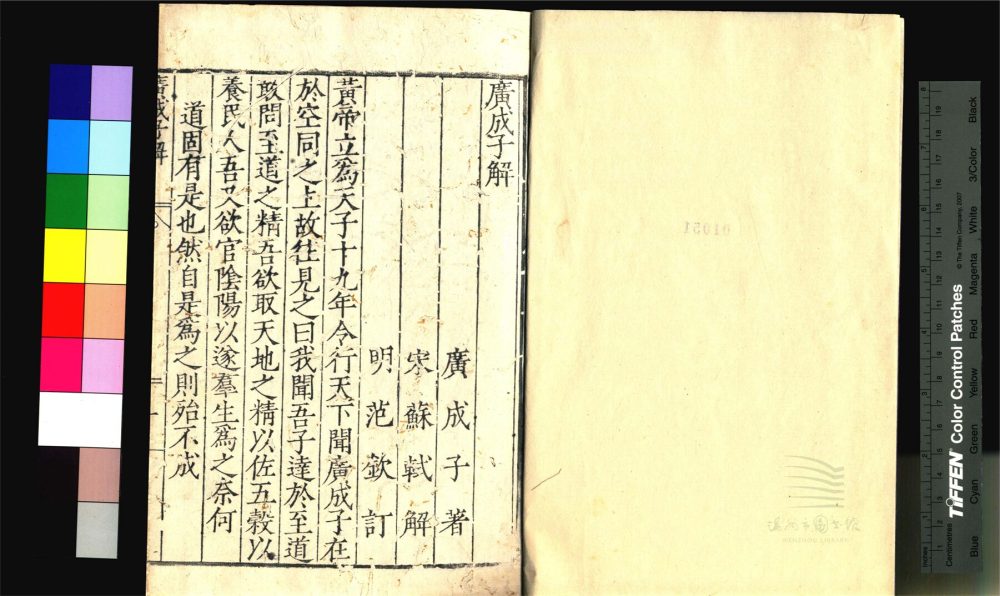 廣成子解
廣成子著
宋蘇軾解
明范欽訂
黃帝立爲天子十九年令行天下聞廣成子在
於空同之上故往見之曰我聞吾子達於至道
敢問至道之精吾欲取天地之精以佐五穀以
養民人吾又欲官陰陽以遂羣生爲之奈何
道固有是也然自是爲之則殆不成
廣成子解
一
01051
溫州市圖書館
WENZHOU LIBRARY
TIFFEN Color Control Patches
© The Tiffen Company, 2007
Centimetres
Inches
Blue
Cyan
Green
Yellow
Red
Magenta
White
3/Color
Black